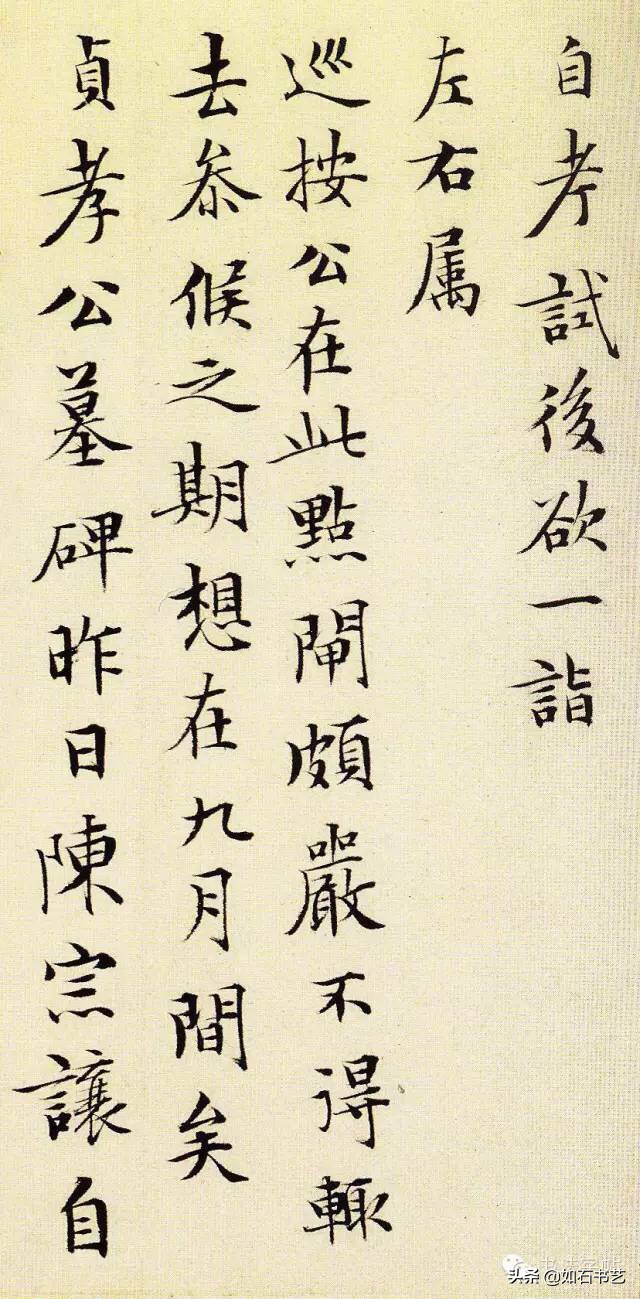 自考試後欲一詣
左右属
巡按公在此點閘頗嚴不得輙
去叅候之期想在九月間矣
貞孝公墓碑昨日陳宗讓自
头条 @如石书艺